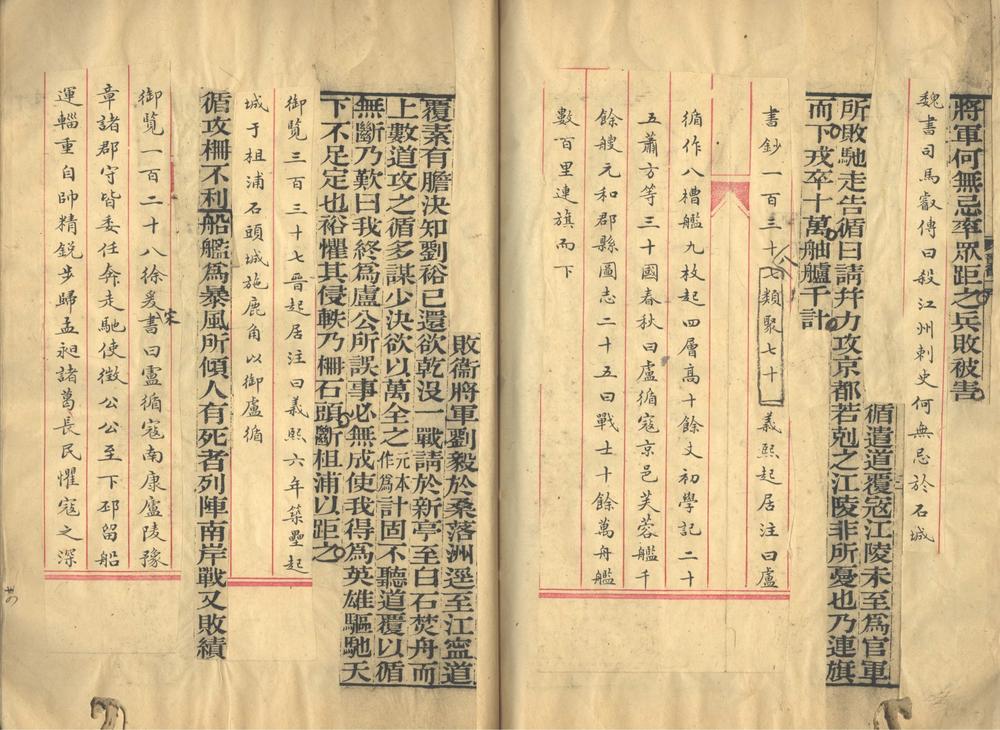 將軍何無忌率眾距之兵敗被害
魏書司馬叡傳曰殺江州刺史何無忌於石城
循遣道覆寇江陵未至為官軍
所敗馳走告循曰請幷力攻京都若剋之江陵非所憂也乃連旗
而下戎卒十萬舳艫千計
書鈔一百三十七八類聚七十一義熙起居注曰盧
循作八槽艦九枚起四層高十餘丈初學記二十
五蕭方等三十國春秋曰盧循寇京邑芙蓉艦千
餘艘元和郡縣圖志二十五曰戰士十餘萬舟艦
數百里連旗而下
敗衞將軍劉毅於桑落洲逕至江寧道
覆素有膽決知劉裕已還欲乾沒一戰請於新亭至白石焚舟而
上數道攻之循多謀少決欲以萬全之元本作為計固不聽道覆以循
無斷乃歎曰我終為盧公所誤事必無成使我得為英雄驅馳天
下不足定也裕懼其侵軼乃柵石頭斷柤浦以距之
御覽三百三十七晉起居注曰義熙六年築壘起
城于柤浦石頭城施鹿角以御盧循
循攻柵不利船艦為暴風所傾人有死者列陣南岸戰又敗績
御覽一百二十八徐爰宋書曰盧循寇南康廬陵豫
章諸郡守皆委任奔走馳使徵公公至下邳留船
運輜重自帥精銳步歸孟昶諸葛長民懼寇之深